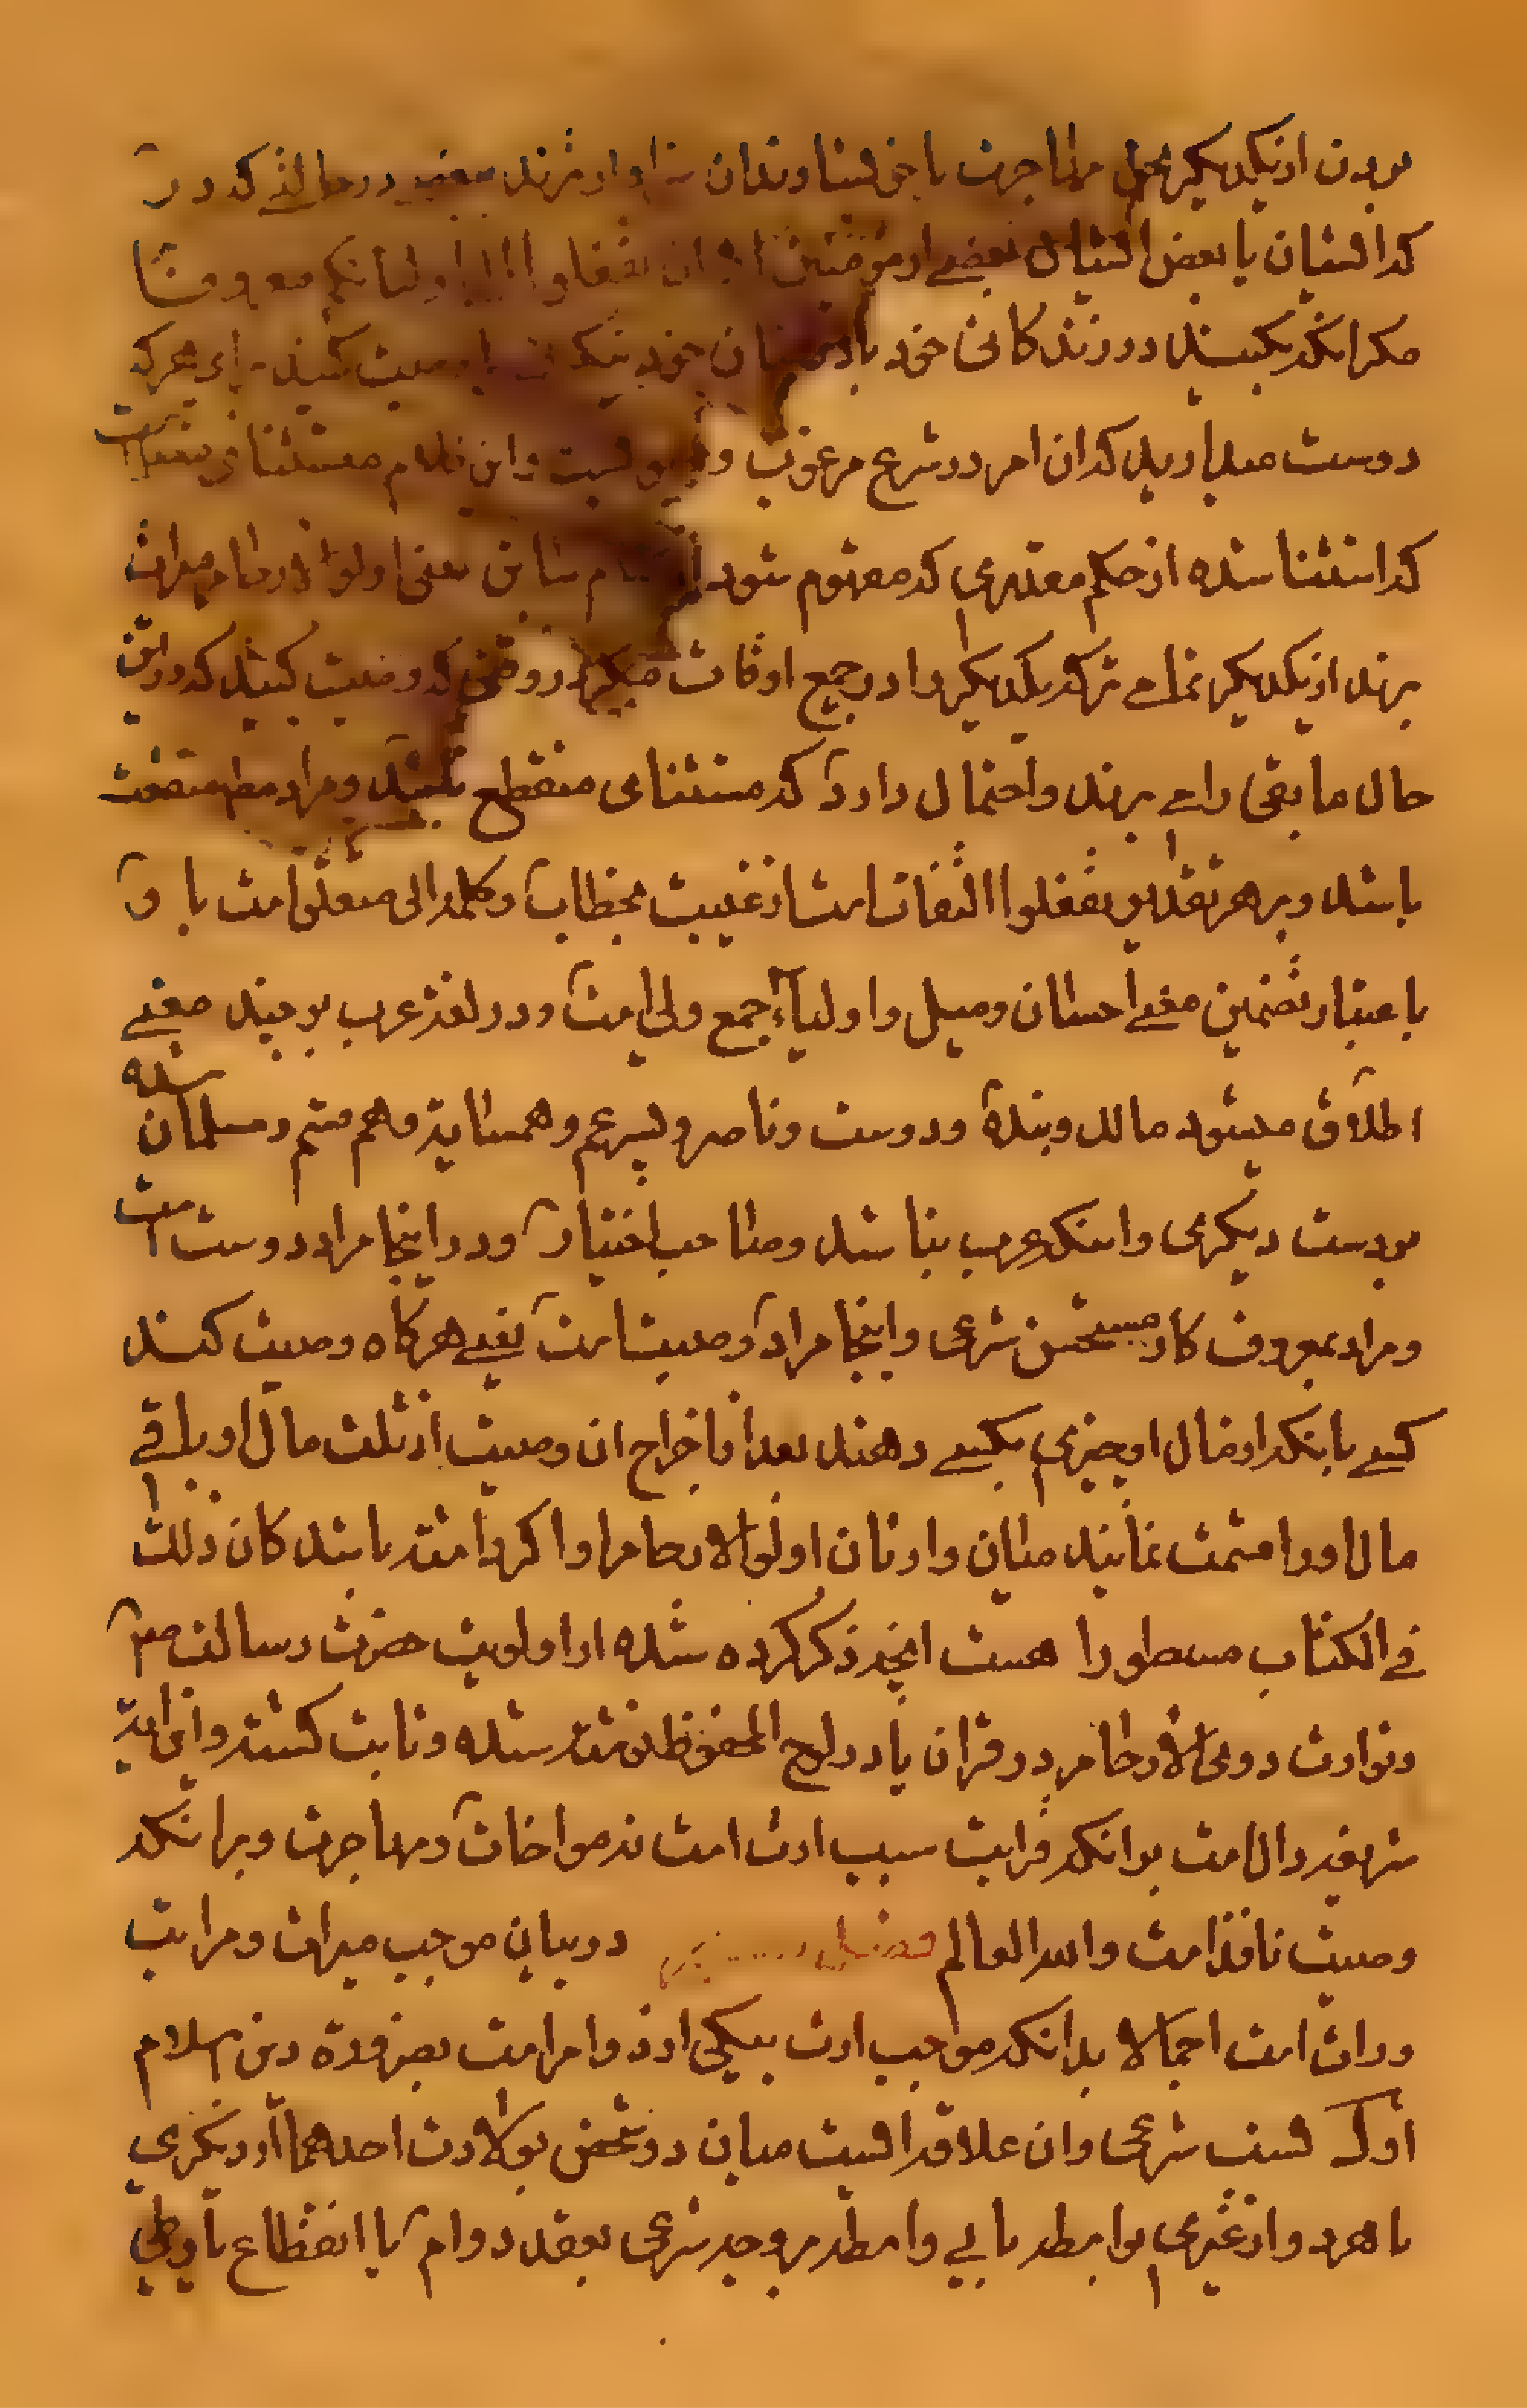 بودن از یکدیگر بحق مهاجرت با خویشاوندان وارثند یعنی در حالتی که در
که ایشان یا بعض ایشان بعضی از مؤمنین ان تفعلوا الی اولیائکم معروفا
مکر انکه بکنید در زندکانی خود با دوستان خود نیکی یا وصیت کنید برای هر که
دوست میدارید که ان امر در شرع مرغوب و نیکوست و این کلام مستثنای متصل است
که استثنا شده از حکم مقدری که مفهوم شود از کلام سابق یعنی اولوا الارحام میراث
برند از یکدیگر تمامی ترکه یکدیگر را در جمیع اوقات مکر در وقتی که وصیت کنید که در این
حال ما بقی را می برند و احتمال دارد که مستثنای منقطع باشد و مراد مطلق منفعت
باشد و بر هر تقدیر تفعلوا التفات است از غیبت بخطاب و کلمه الی متعلق است با و
باعتبار تضمین معنی احسان و میل و اولیاء جمع ولی است و در لغة عرب بر چند معنی
اطلاق میشود مالک و بنده و دوست و ناصر و پسر عم و همسایه و هم قسم و مسلمان شده
بر دست دیکری و انکه عرب بناشد و صاحب اختیار و در اینجا مراد دوست است
و مراد بمعروف کار مستحسن شرعی و اینجا مراد وصیت است یعنی هرکاه وصیت کند
کسی بانکه از مال او چیزی بکسی دهند بعد از اخراج ان وصیت از ثلث مال او باقی
مال او را قسمت نمایند میان وارثان اولو الارحام او اکر داشته باشد کان ذلک
فی الکتاب مسطورا هست انچه ذکر کرده شده از اولویت حضرت رسالت ص
و توارث ذوی الارحام در قران یا در لوح المحفوظ نوشته شده و ثابت کشته و این ایه
شریفه دال است بر انکه قرابت سبب ارث است نه مواخات و مهاجرت و بر انکه
وصیت نافذ است والله العالم فصل در بیان موجب میراث و مراتب
وراث است اجمالا بدانکه موجب ارث یکی از دو امر است بضرورة دین اسلام
اول نسب شرعی و ان علاقه ایست میان دو شخص بولادت احدهما از دیکری
یا هر دو از غیری بواسطه یا بی واسطه بر وجه شرعی بعقد دوام یا انقطاع یا وطی